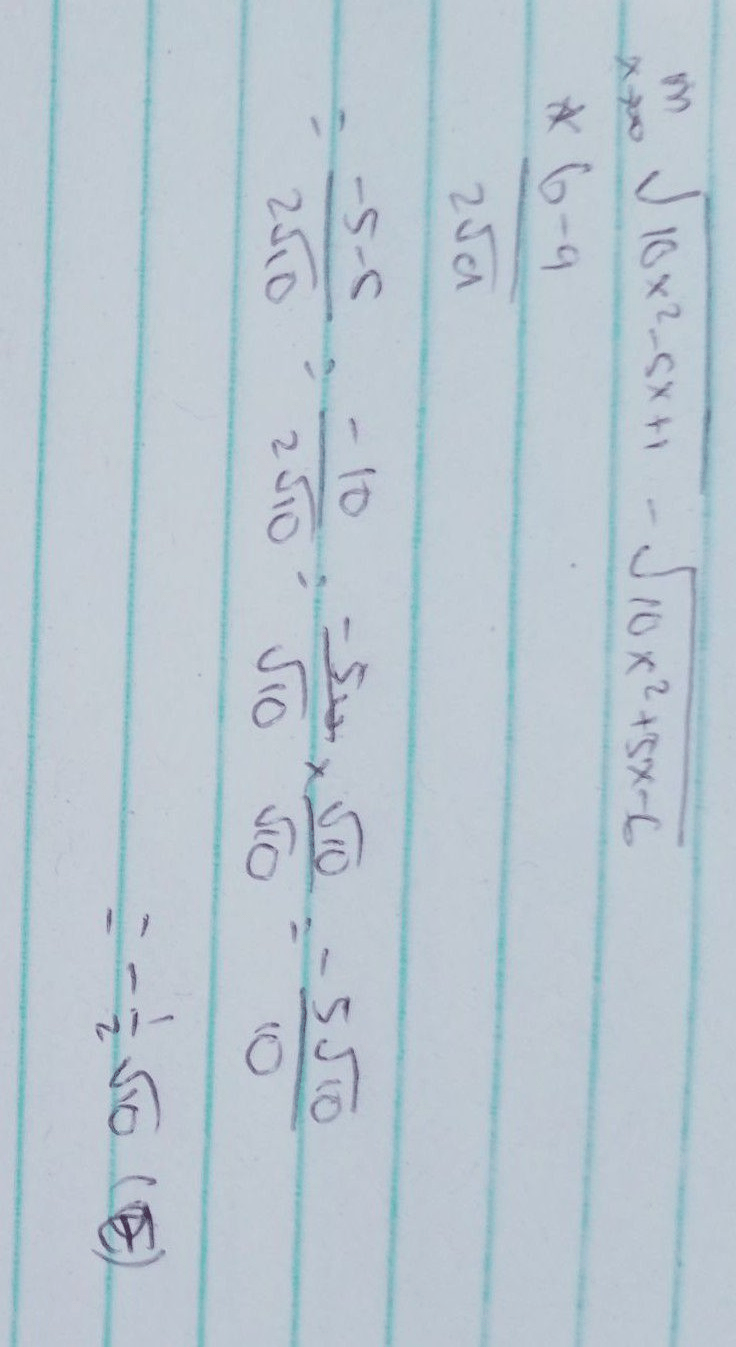 m
x→∞ √10x²-5x+1 - √10x²+5x-6
* b-q / 2√a
= -5-5 / 2√10 = -10 / 2√10 = -5 / √10 × √10 / √10 = -5√10 / 10
= - 1/2 √10 (E)